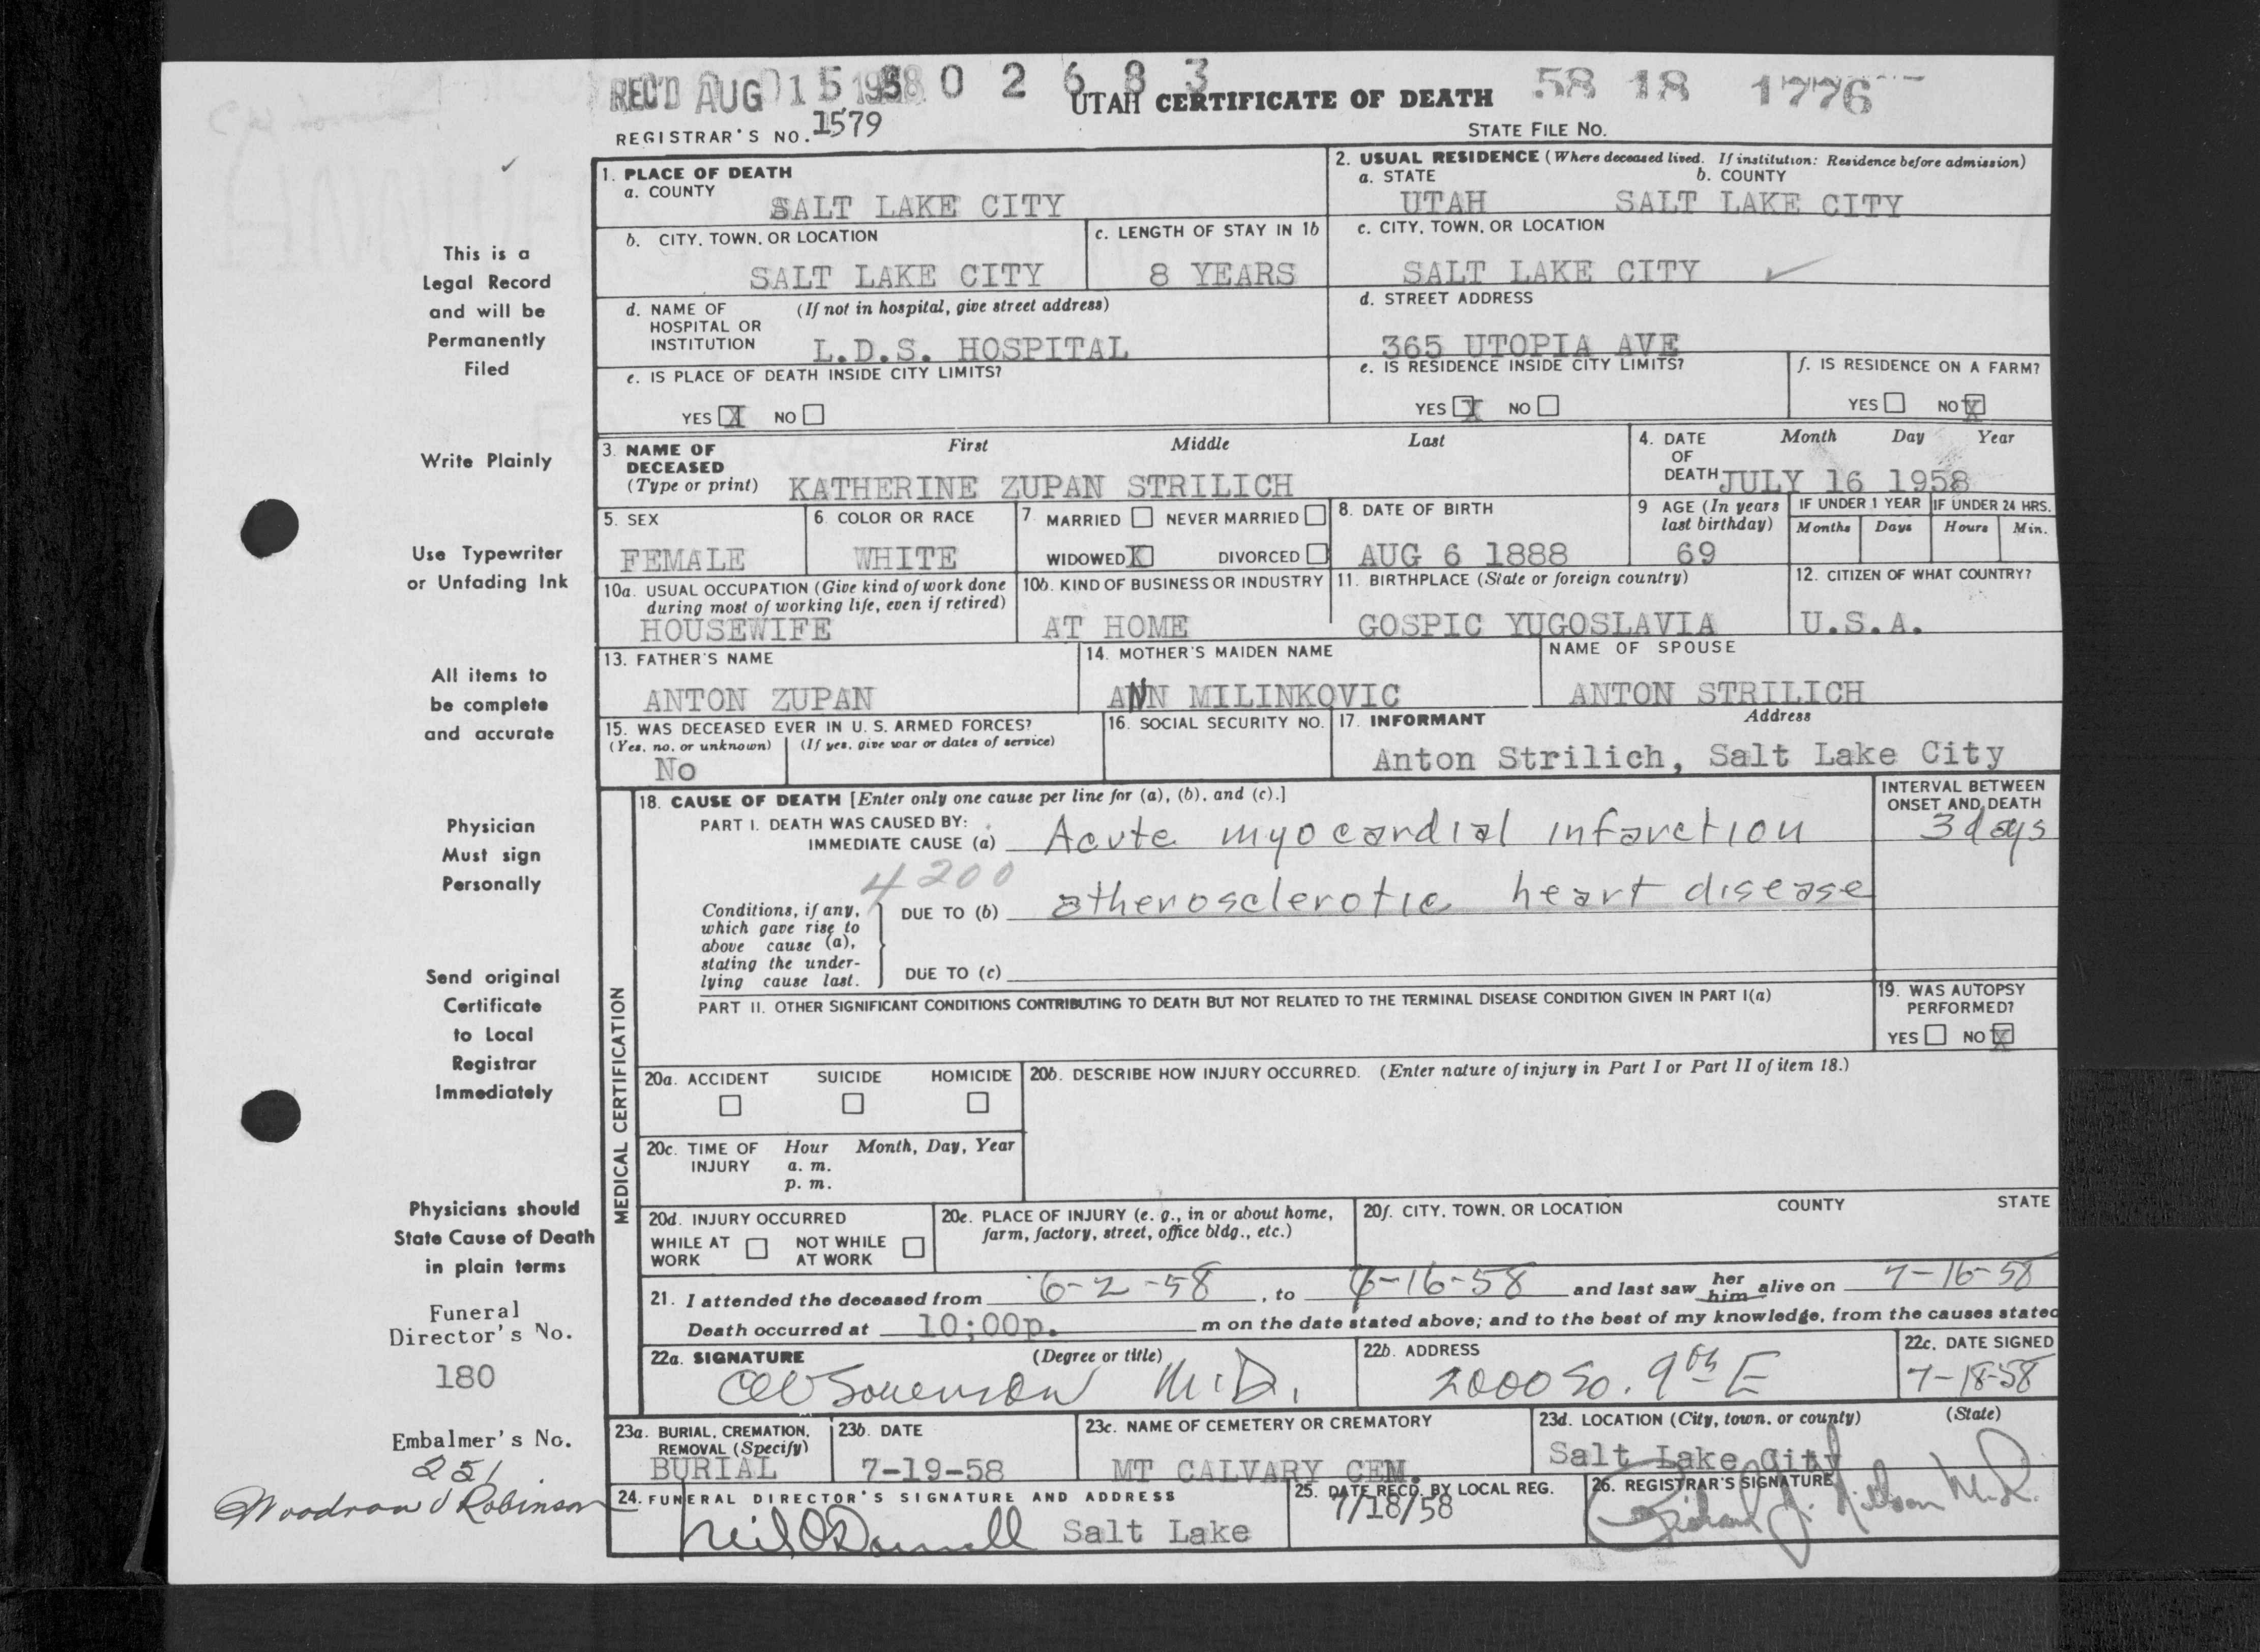 REC'D AUG 15 1958 0 2 6 8 3 58 18 1776
UTAH CERTIFICATE OF DEATH
REGISTRAR'S NO. 1579 STATE FILE NO.
1. PLACE OF DEATH
a. COUNTY
SALT LAKE CITY
2. USUAL RESIDENCE (Where deceased lived. If institution: Residence before admission)
a. STATE b. COUNTY
UTAH SALT LAKE CITY
b. CITY, TOWN, OR LOCATION
SALT LAKE CITY
c. LENGTH OF STAY IN 1b
8 YEARS
c. CITY, TOWN, OR LOCATION
SALT LAKE CITY
d. NAME OF (If not in hospital, give street address)
HOSPITAL OR
INSTITUTION L.D.S. HOSPITAL
d. STREET ADDRESS
365 UTOPIA AVE
e. IS PLACE OF DEATH INSIDE CITY LIMITS?
YES X NO
e. IS RESIDENCE INSIDE CITY LIMITS?
YES X NO
f. IS RESIDENCE ON A FARM?
YES NO X
3. NAME OF First Middle Last
DECEASED
(Type or print) KATHERINE ZUPAN STRILICH
4. DATE Month Day Year
OF
DEATH JULY 16 1958
5. SEX
FEMALE
6. COLOR OR RACE
WHITE
7. MARRIED NEVER MARRIED
WIDOWED X DIVORCED
8. DATE OF BIRTH
AUG 6 1888
9 AGE (In years
last birthday)
69
IF UNDER 1 YEAR IF UNDER 24 HRS.
Months Days Hours Min.
10a. USUAL OCCUPATION (Give kind of work done
during most of working life, even if retired)
HOUSEWIFE
10b. KIND OF BUSINESS OR INDUSTRY
AT HOME
11. BIRTHPLACE (State or foreign country)
GOSPIC YUGOSLAVIA
12. CITIZEN OF WHAT COUNTRY?
U.S.A.
13. FATHER'S NAME
ANTON ZUPAN
14. MOTHER'S MAIDEN NAME
ANN MILINKOVIC
NAME OF SPOUSE
ANTON STRILICH
15. WAS DECEASED EVER IN U. S. ARMED FORCES?
(Yes, no, or unknown) (If yes, give war or dates of service)
No
16. SOCIAL SECURITY NO.
17. INFORMANT Address
Anton Strilich, Salt Lake City
18. CAUSE OF DEATH [Enter only one cause per line for (a), (b), and (c).]
INTERVAL BETWEEN
ONSET AND DEATH
PART I. DEATH WAS CAUSED BY:
IMMEDIATE CAUSE (a) Acute myocardial infarction 3 days
4200
Conditions, if any,
which gave rise to
above cause (a),
stating the under-
lying cause last.
DUE TO (b) atherosclerotic heart disease
DUE TO (c)
PART II. OTHER SIGNIFICANT CONDITIONS CONTRIBUTING TO DEATH BUT NOT RELATED TO THE TERMINAL DISEASE CONDITION GIVEN IN PART I(a)
19. WAS AUTOPSY
PERFORMED?
YES NO X
MEDICAL CERTIFICATION
20a. ACCIDENT SUICIDE HOMICIDE
20b. DESCRIBE HOW INJURY OCCURRED. (Enter nature of injury in Part I or Part II of item 18.)
20c. TIME OF Hour Month, Day, Year
INJURY a. m.
p. m.
20d. INJURY OCCURRED
WHILE AT NOT WHILE
WORK AT WORK
20e. PLACE OF INJURY (e. g., in or about home,
farm, factory, street, office bldg., etc.)
20f. CITY, TOWN, OR LOCATION COUNTY STATE
21. I attended the deceased from 6-2-58, to 7-16-58 and last saw her him alive on 7-16-58
Death occurred at 10:00p. m on the date stated above; and to the best of my knowledge, from the causes stated
22a. SIGNATURE (Degree or title)
Sorenson M.D.
22b. ADDRESS
2000 So. 9th E
22c. DATE SIGNED
7-18-58
23a. BURIAL, CREMATION,
REMOVAL (Specify)
BURIAL
23b. DATE
7-19-58
23c. NAME OF CEMETERY OR CREMATORY
MT CALVARY CEM.
23d. LOCATION (City, town, or county) (State)
Salt Lake City
24. FUNERAL DIRECTOR'S SIGNATURE AND ADDRESS
Neil O'Donnell Salt Lake
25. DATE RECD. BY LOCAL REG.
7/18/58
26. REGISTRAR'S SIGNATURE
Richard
This is a
Legal Record
and will be
Permanently
Filed
Write Plainly
Use Typewriter
or Unfading Ink
All items to
be complete
and accurate
Physician
Must sign
Personally
Send original
Certificate
to Local
Registrar
Immediately
Physicians should
State Cause of Death
in plain terms
Funeral
Director's No.
180
Embalmer's No.
251
Woodrow J Robinson